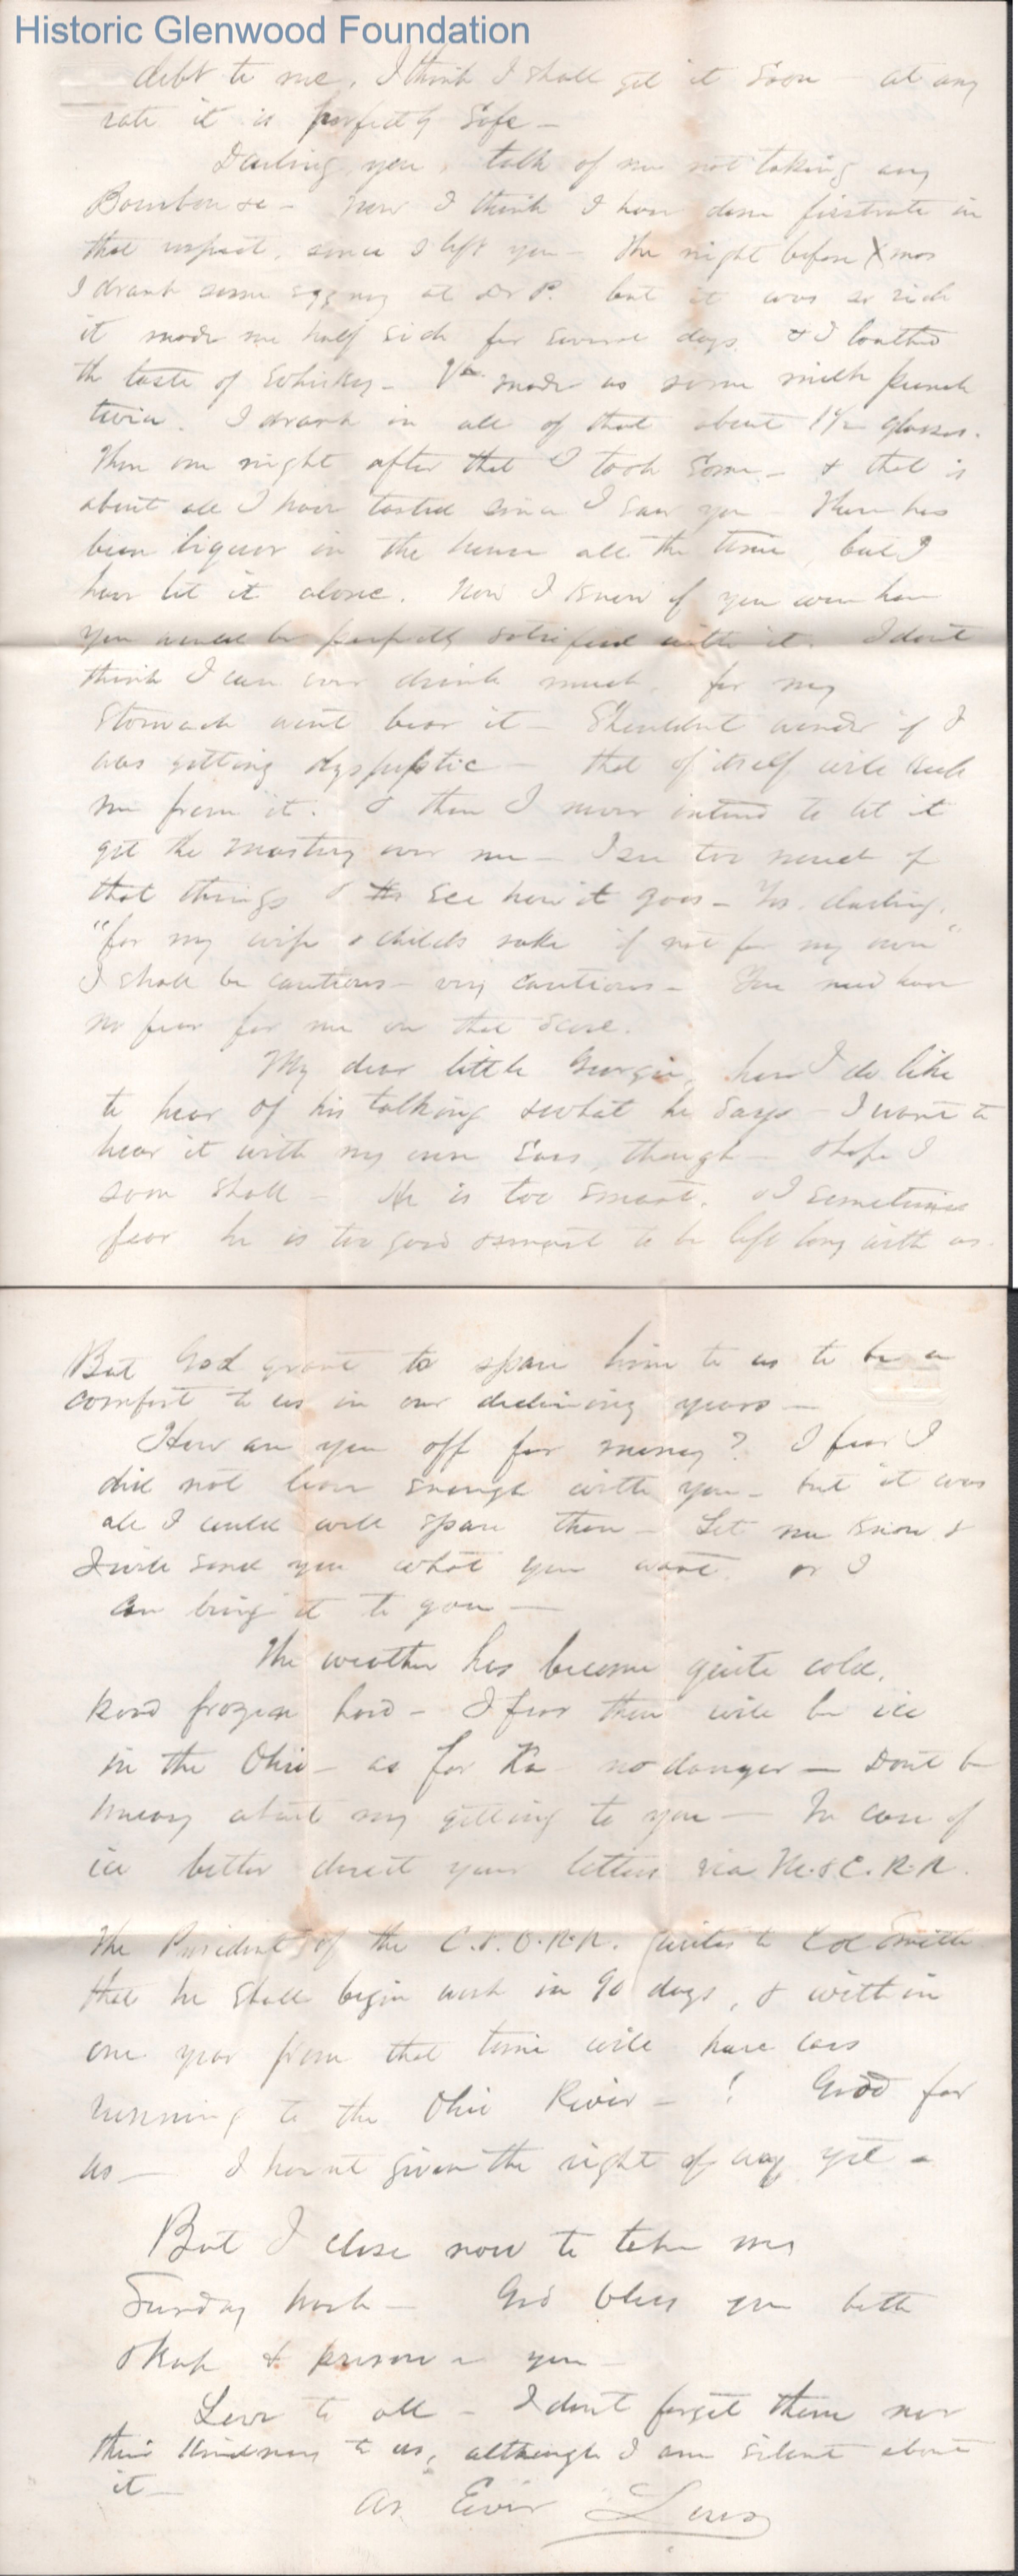 Historic Glenwood Foundation
debt to me. I think I shall get it soon at any
rate it is perfectly safe –
Darling, you talk of me not taking any
Bourbon &c – Now I think I have done firstrate in
that respect, since I left you – The night before Xmas
I drank some eggnog at Dr P. but it was so rich
it made me half sick for several days. & I loathed
the taste of Whisky – made us some milk punch
twice. I drank in all of that about 1 1/2 glasses.
Then one night after that I took some – & that is
about all I have tasted since I saw you – There has
been liquor in the house all the time, but I
have let it alone. Now I know if you were here
you would be perfectly satisfied with it. I dont
think I can ever drink much, for my
stomach wont bear it – Shouldnt wonder if I
was getting dyspeptic – that of itself will
me from it. & then I never intend to let it
get the mastery over me – I see too much of
that things & see how it goes – Yes, darling,
"for my wife & childs sake if not for my own"
I shall be cautious – very cautious – You need have
no fear for me on that score.
My dear little Georgie, how I do like
to hear of his talking & what he says – I want to
hear it with my own ears, though – & hope I
soon shall – He is too smart. & I sometimes
fear he is too good & smart to be left long with us.
But God grant to spare him to us to be a
comfort to us in our declining years –
How are you off for money? I fear I
did not leave enough with you – but it was
all I could well spare then – Let me know &
I will send you what you want or I
can bring it to you –
The weather has become quite cold.
Road frozen hard – I fear there will be ice
in the Ohio – as for Ka no danger – Dont be
uneasy about my getting to you – In case of
ice better direct your letters via M. & C. R. R.
The President of the C. & O. R. R. writes to Col Smith
that he shall begin work in 90 days, & within
one year from that time will have cars
running to the Ohio River – ! Good for
us – I havnt given the right of way yet –
But I close now to take my
Sunday God bless you both
& keep & preserve you
Love to all – I dont forget them nor
their kindness to us, although I am silent about
it –
As Ever Lewis